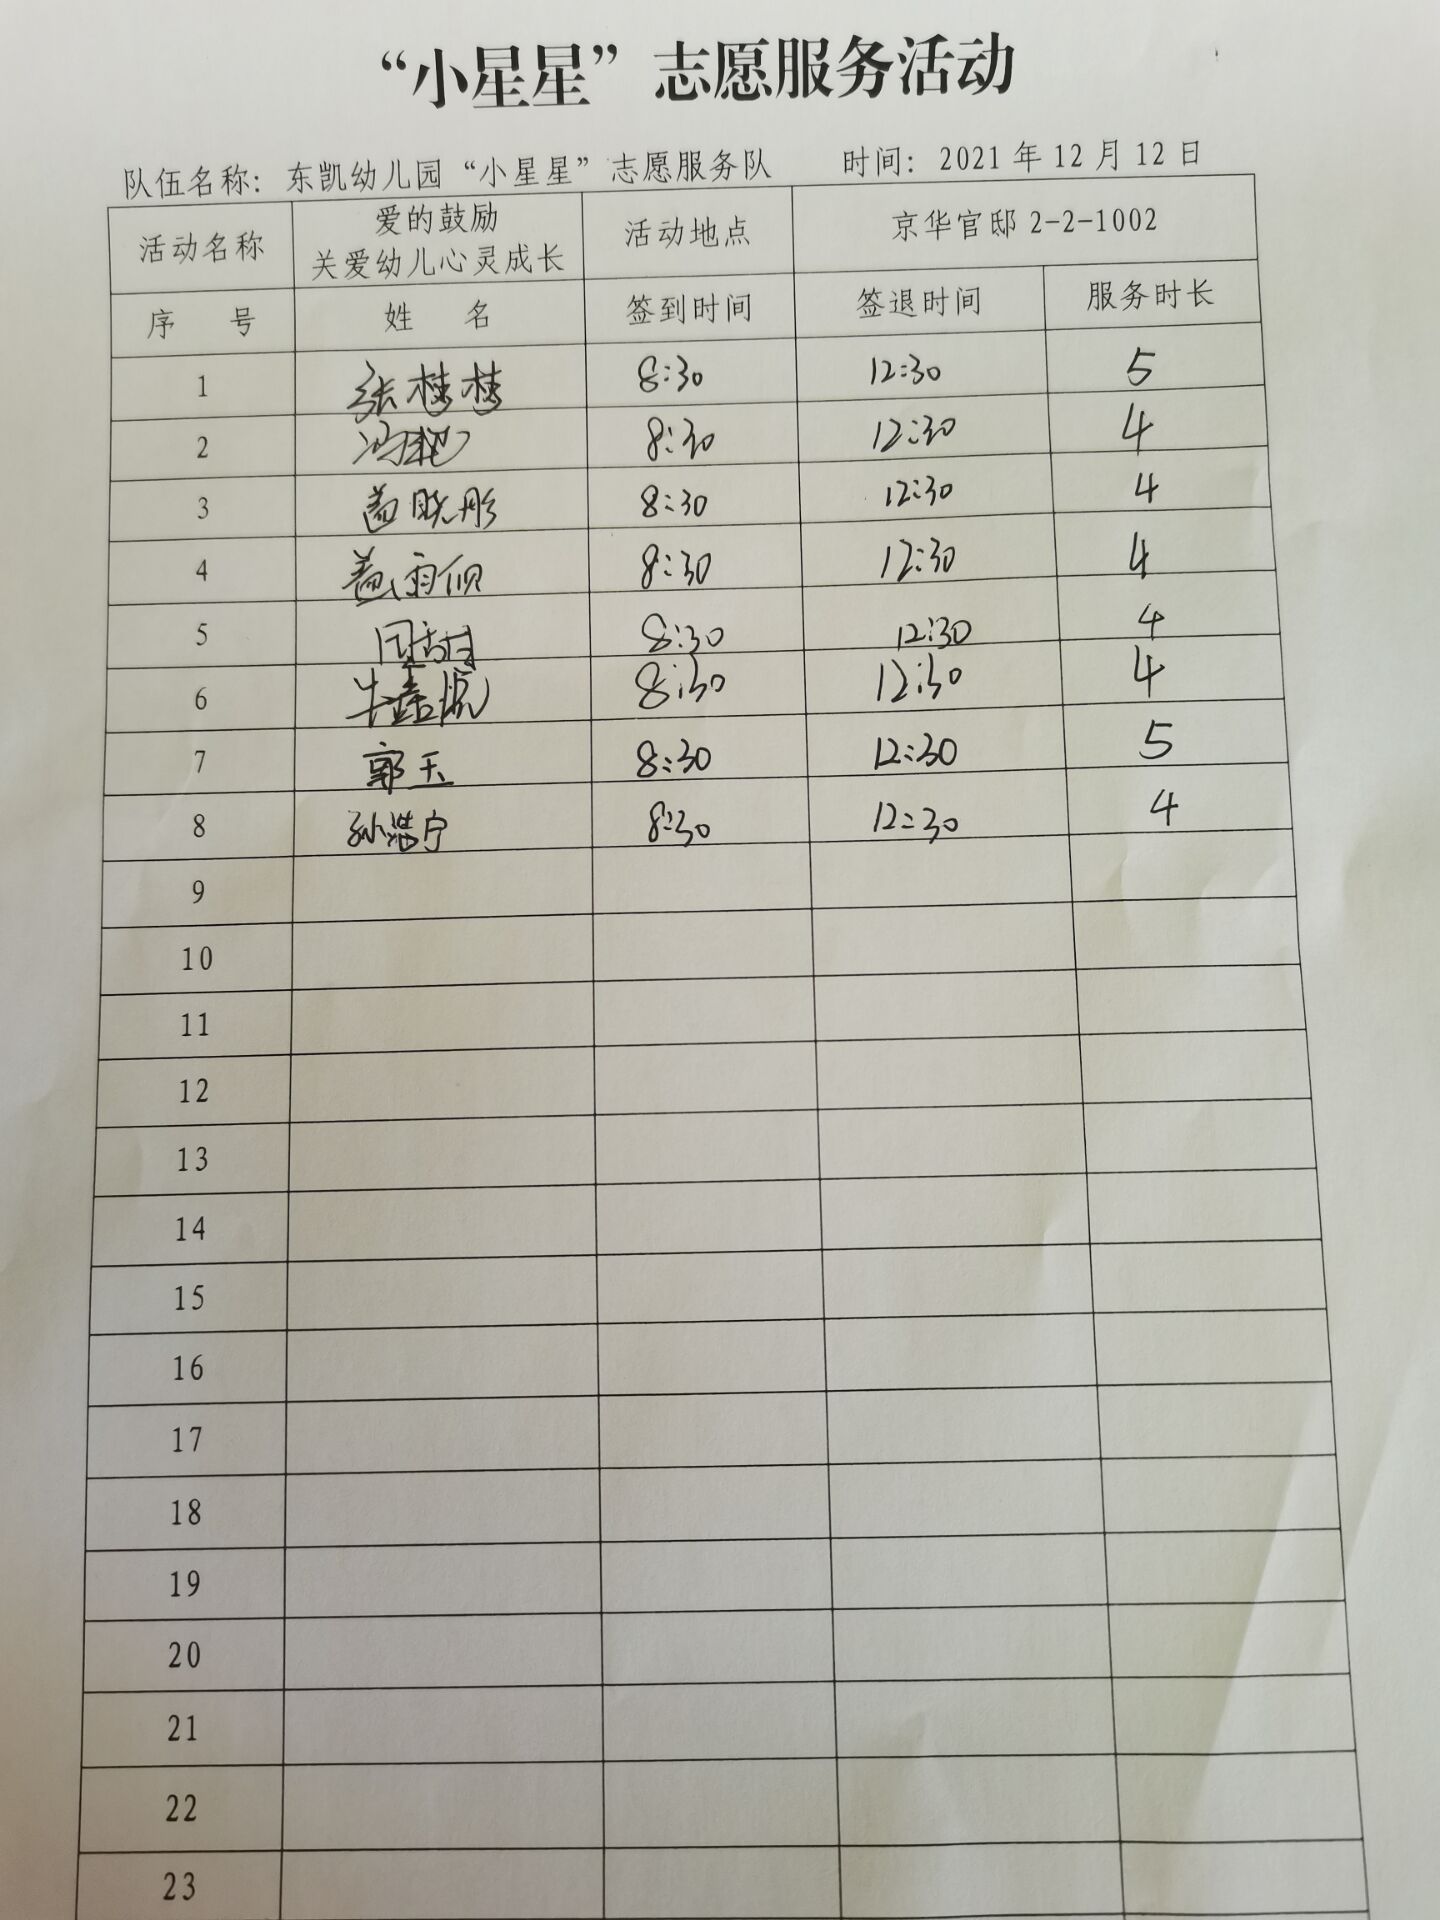 “小星星”志愿服务活动
队伍名称：东凯幼儿园“小星星”志愿服务队 时间：2021年12月12日
活动名称 爱的鼓励 关爱幼儿心灵成长 活动地点 京华官邸 2-2-1002
序 号 姓 名 签到时间 签退时间 服务时长
1 张梼梼 8:30 12:30 5
2 冯艳 8:30 12:30 4
3 盖晓彤 8:30 12:30 4
4 盖雨佩 8:30 12:30 4
5 8:30 12:30 4
6 牛鑫悦 8:30 12:30 4
7 郭玉 8:30 12:30 5
8 孙浩宁 8:30 12:30 4
9
10
11
12
13
14
15
16
17
18
19
20
21
22
23